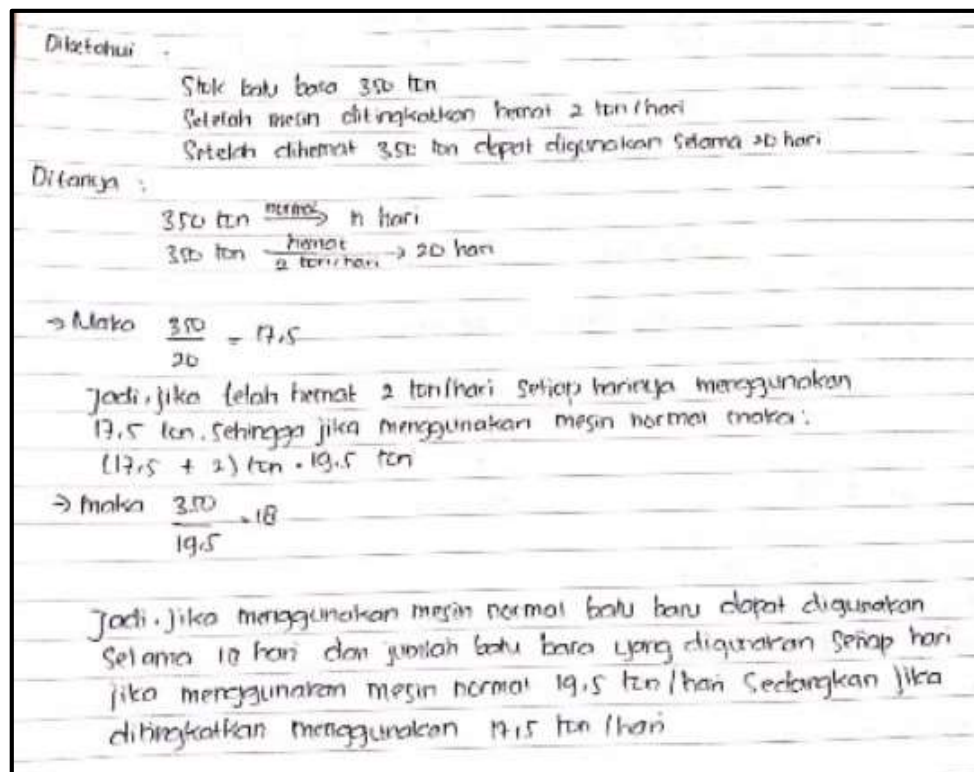 Diketahui :
Stok batu bara 350 ton
Setelah mesin ditingkatkan hemat 2 ton/hari
Setelah dihemat 350 ton dapat digunakan selama 20 hari
Ditanya :
350 ton normal → n hari
350 ton hemat 2 ton/hari → 20 hari
→ Maka 350/20 = 17,5
Jadi, jika telah hemat 2 ton/hari setiap harinya menggunakan
17,5 ton. Sehingga jika menggunakan mesin normal maka :
(17,5 + 2) ton = 19,5 ton
→ Maka 350/19,5 = 18
Jadi, jika menggunakan mesin normal batu baru dapat digunakan
selama 18 hari dan jumlah batu bara yang digunakan setiap hari
jika menggunakan mesin normal 19,5 ton/hari sedangkan jika
ditingkatkan menggunakan 17,5 ton/hari